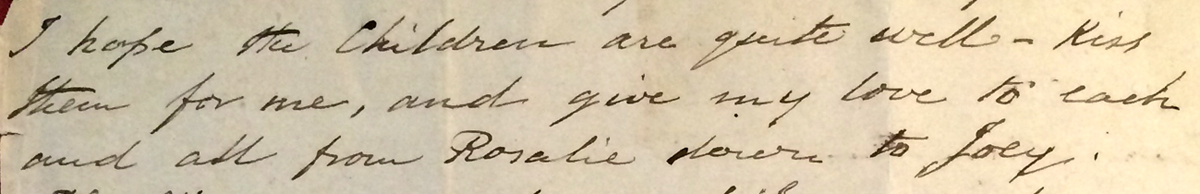 I hope the Children are quite well - Kiss
them for me, and give my love to each
and all from Rosalie down to Joey.